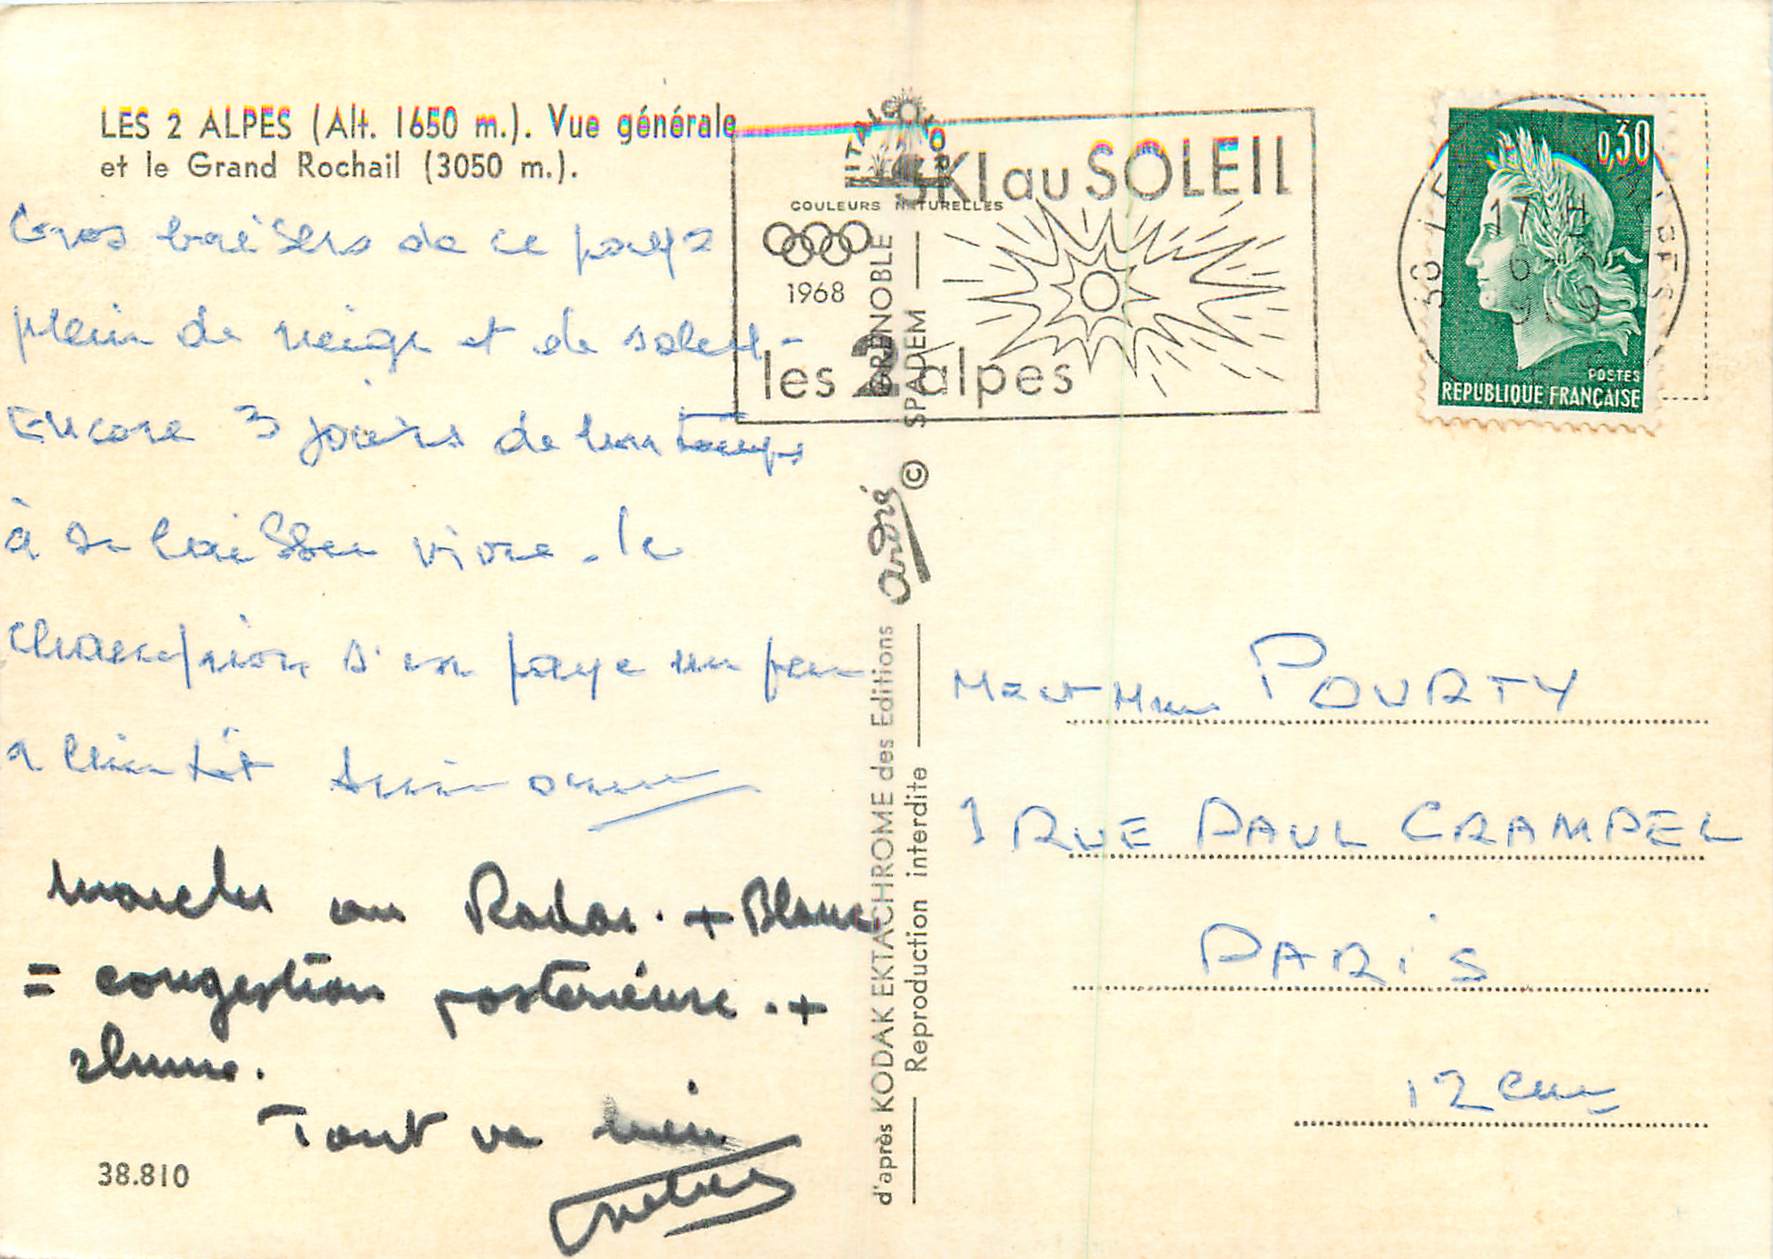 LES 2 ALPES (Alt. 1650 m.). Vue générale
et le Grand Rochail (3050 m.).
Gros baisers de ce pays
plein de neige et de soleil -
Encore 3 jours de
à se laisser vivre - le
champion s'en paye un peu
a bientôt Simone
marche au Radar. + Blanc
= congestion postérieure. +
rhume.
Tout va bien
38.810
COULEURS NATURELLES
SKI au SOLEIL
1968
les 2 alpes
GRENOBLE
© SPADEM
d'après KODAK EKTACHROME des Editions André
Reproduction interdite
0,30
17 H
POSTES
REPUBLIQUE FRANÇAISE
Mr et Mme POURTY
1 RUE PAUL CRAMPEL
PARIS
12 eme